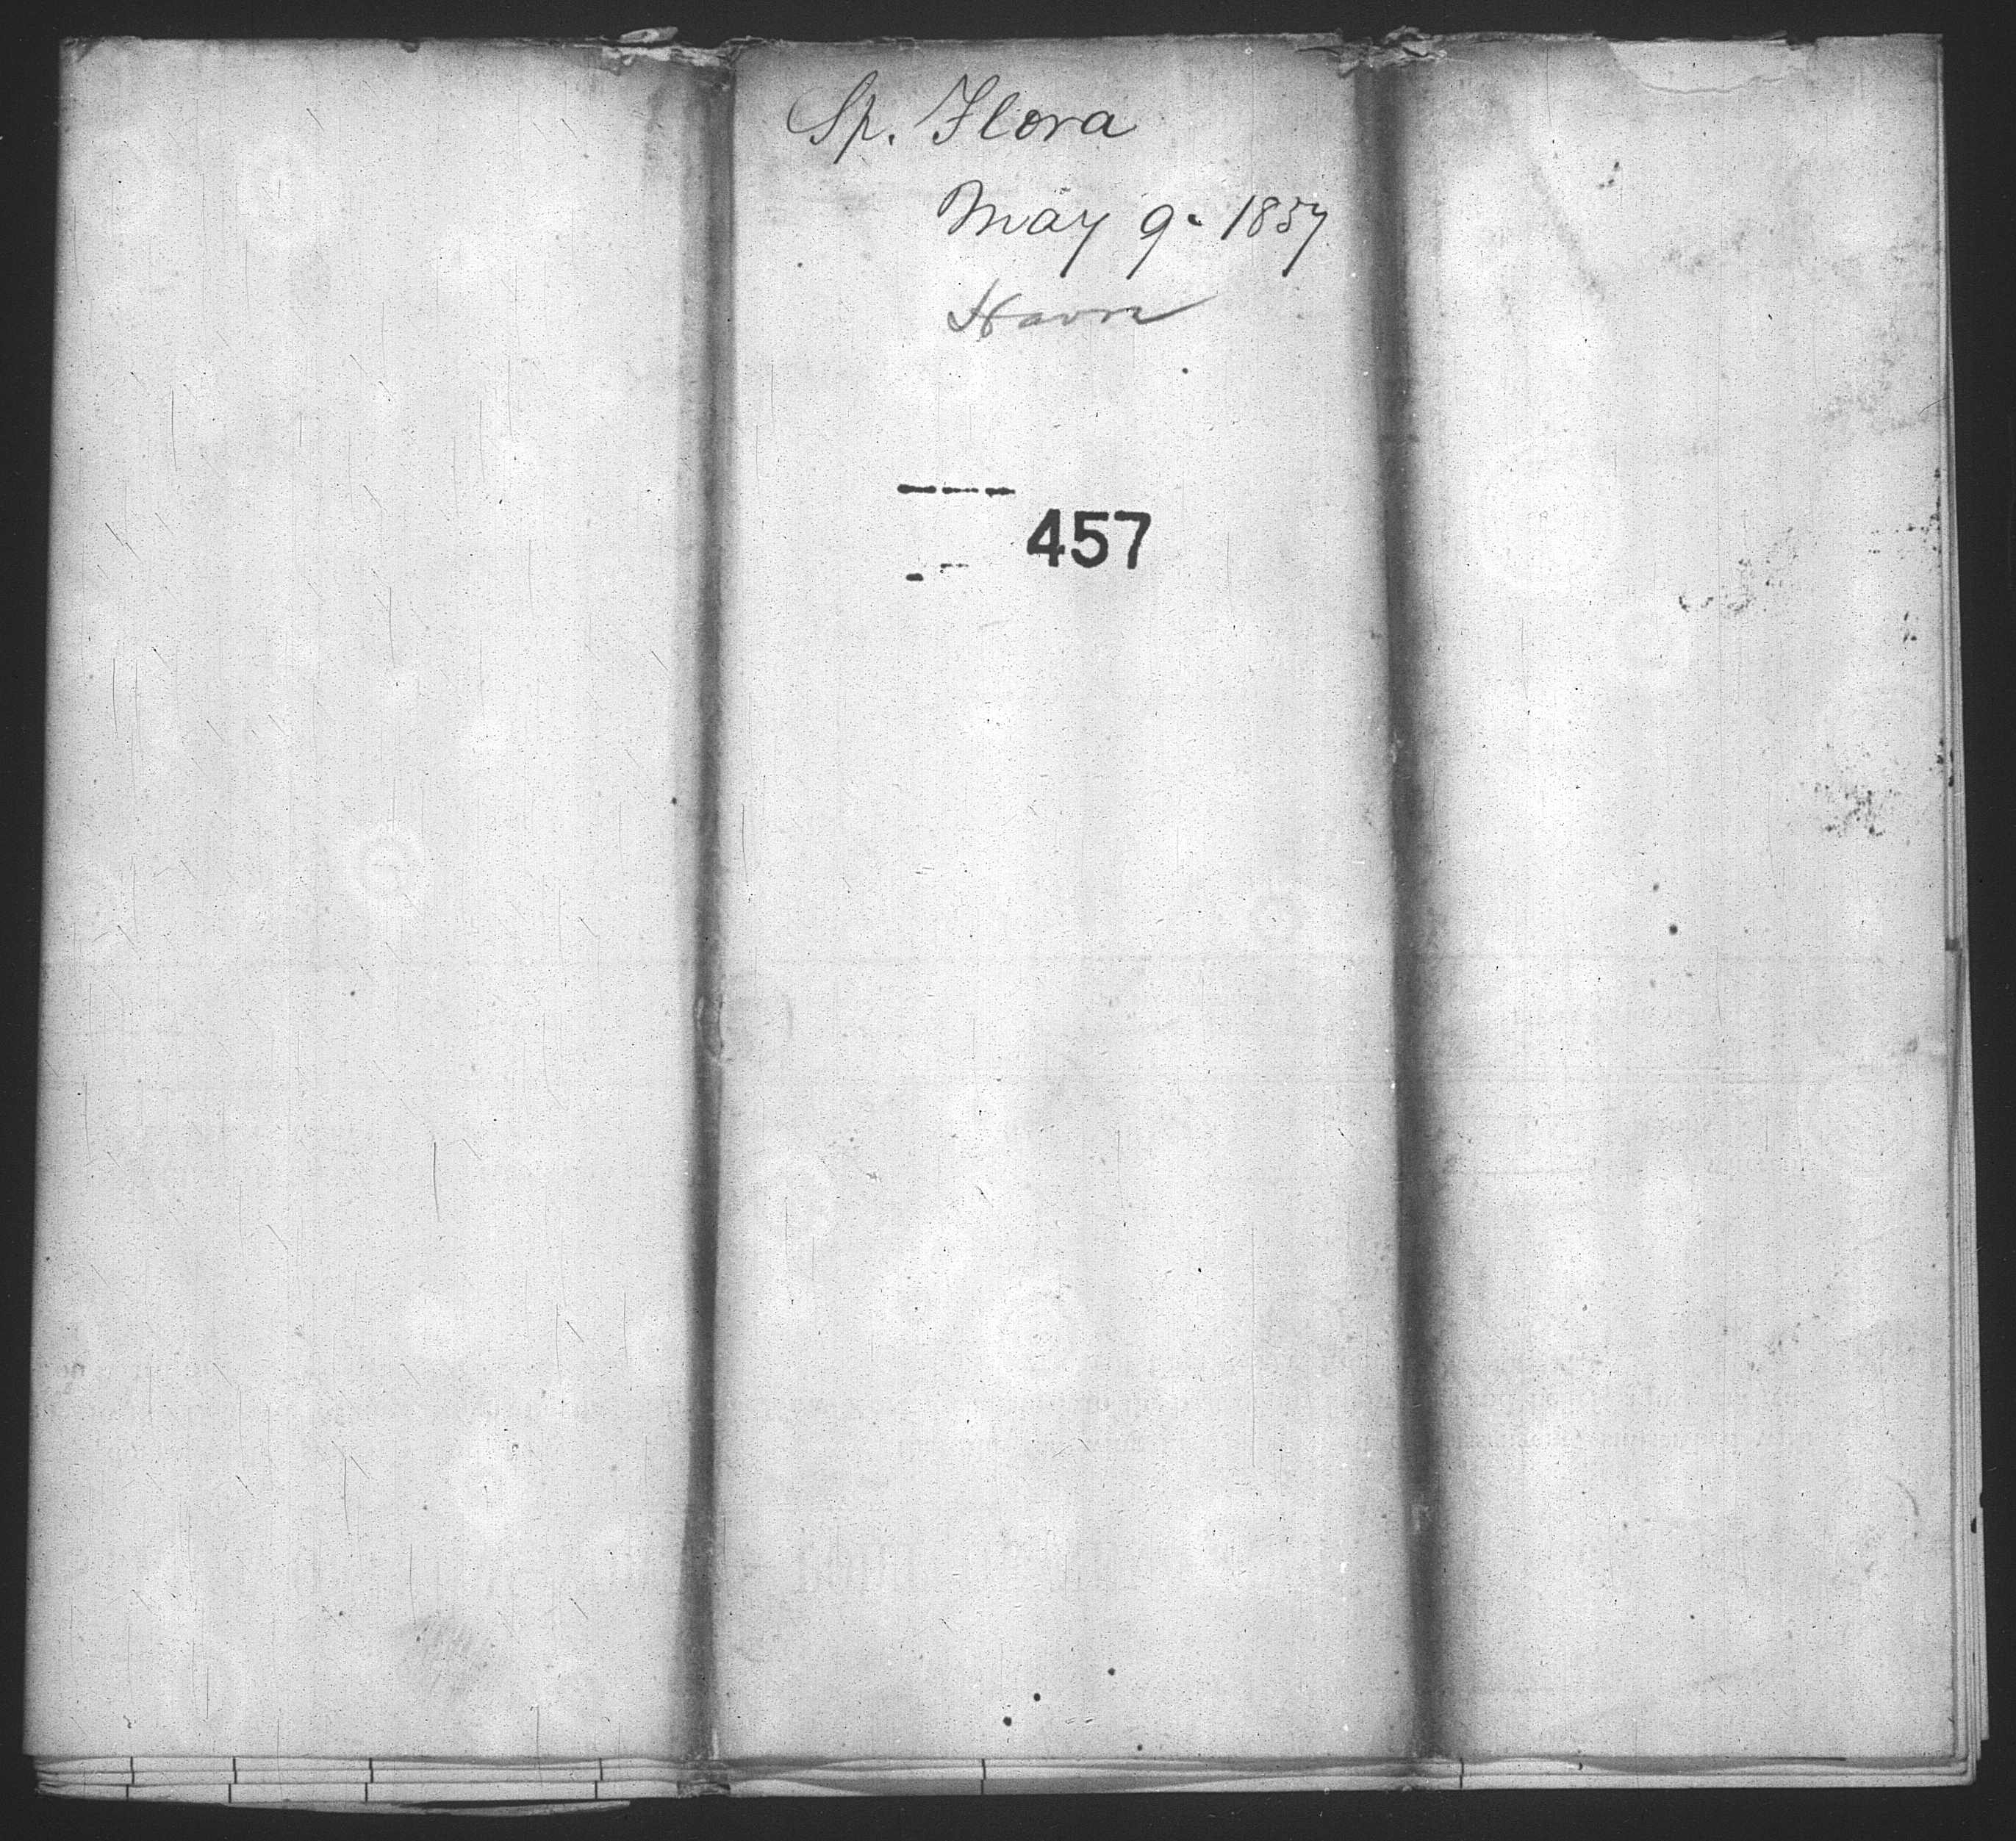 Sp. Flora
May 9. 1857
Havre
457